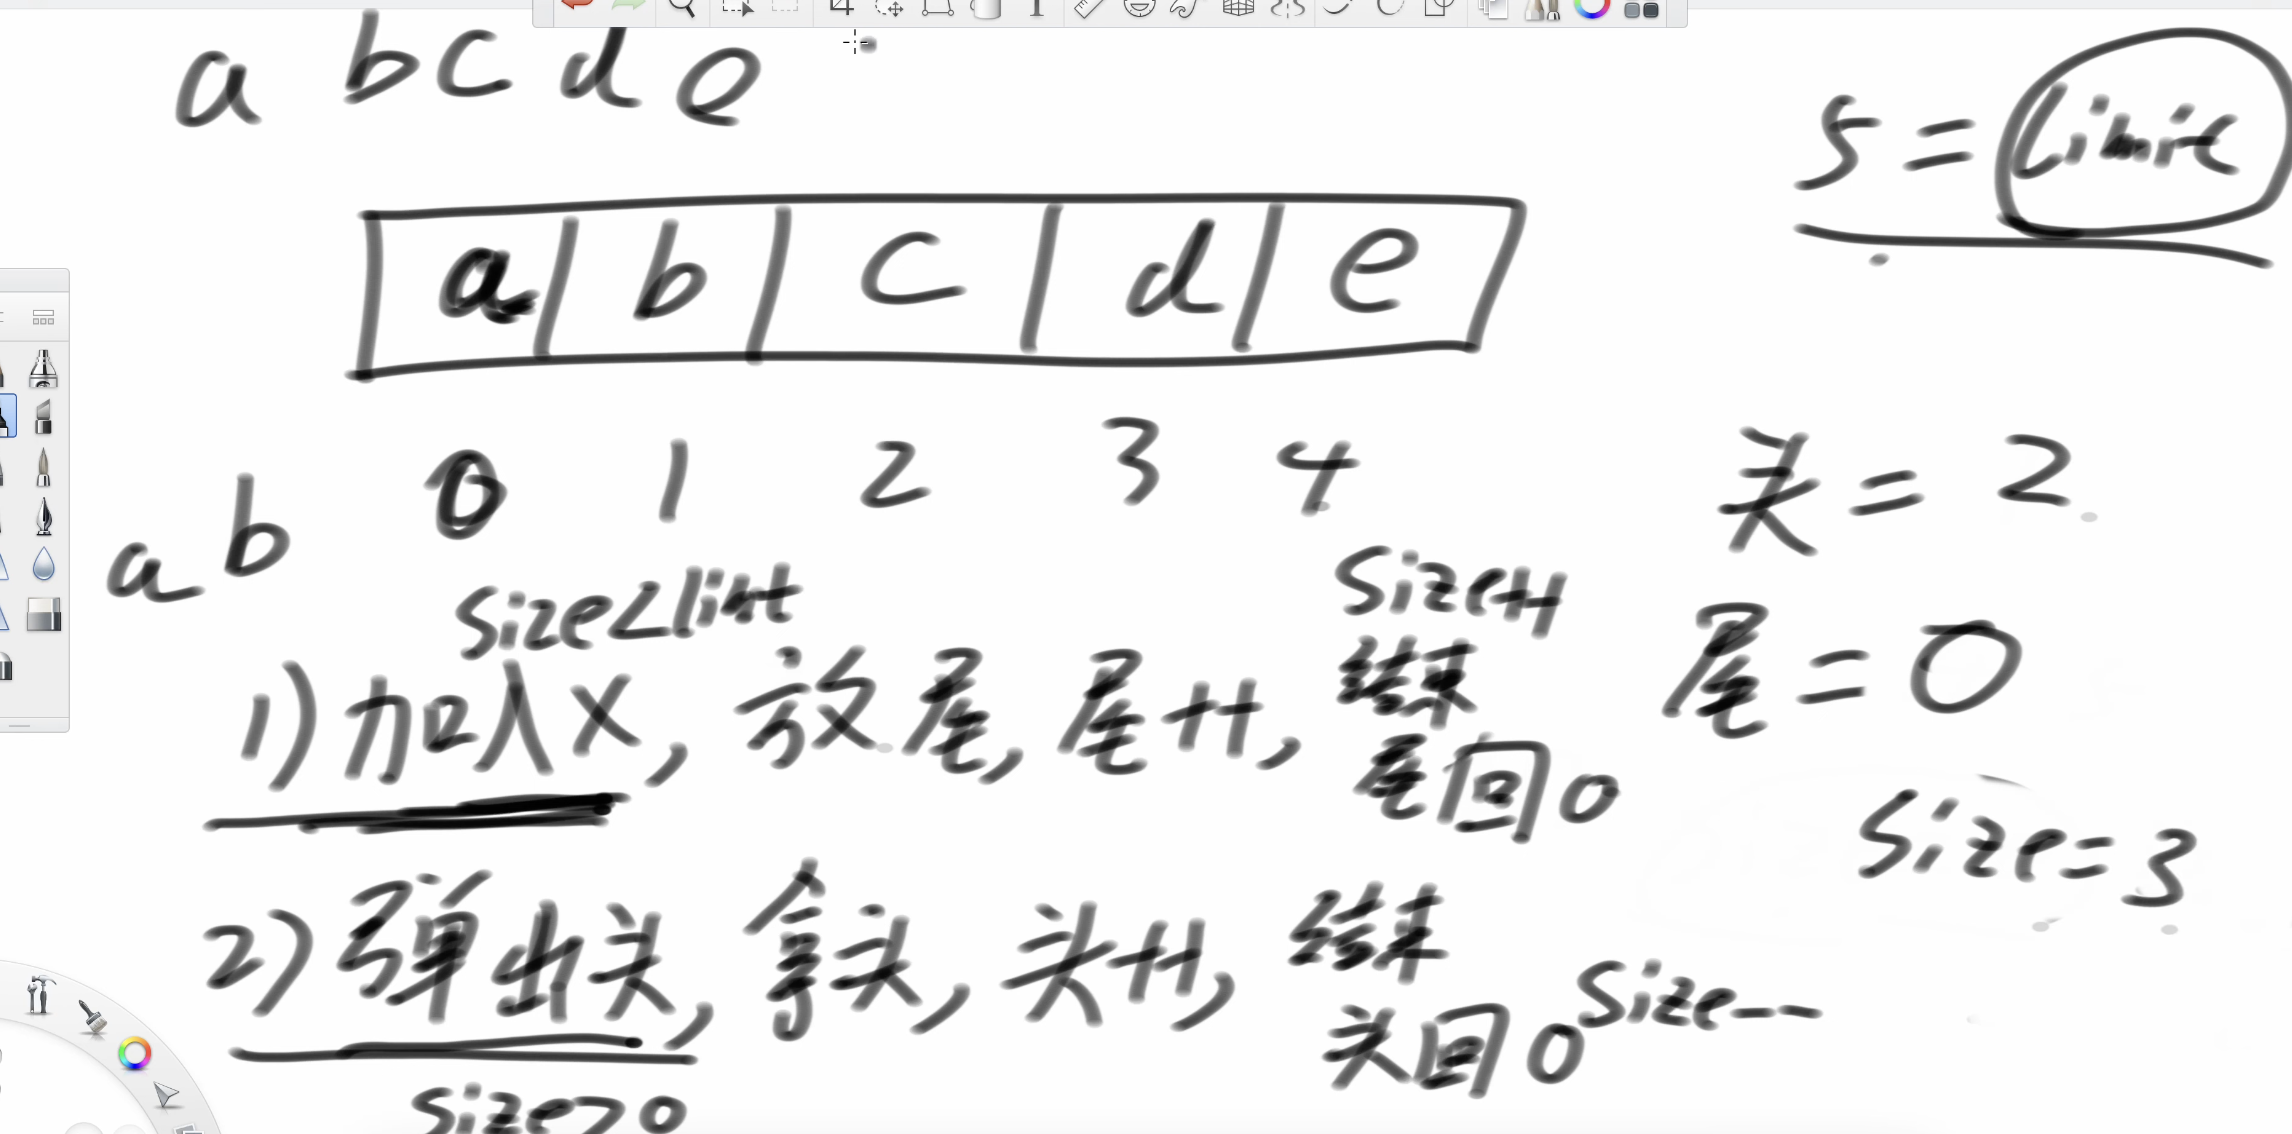 a b c d e
5 = limit
a b c d e
0 1 2 3 4
头 = 2
a b
size<limit
size++
尾 = 0
1) 加入X, 放尾, 尾++, 结束
尾回0
size=3
2) 弹出头, 拿头, 头++, 结束
头回0
size--
size>0